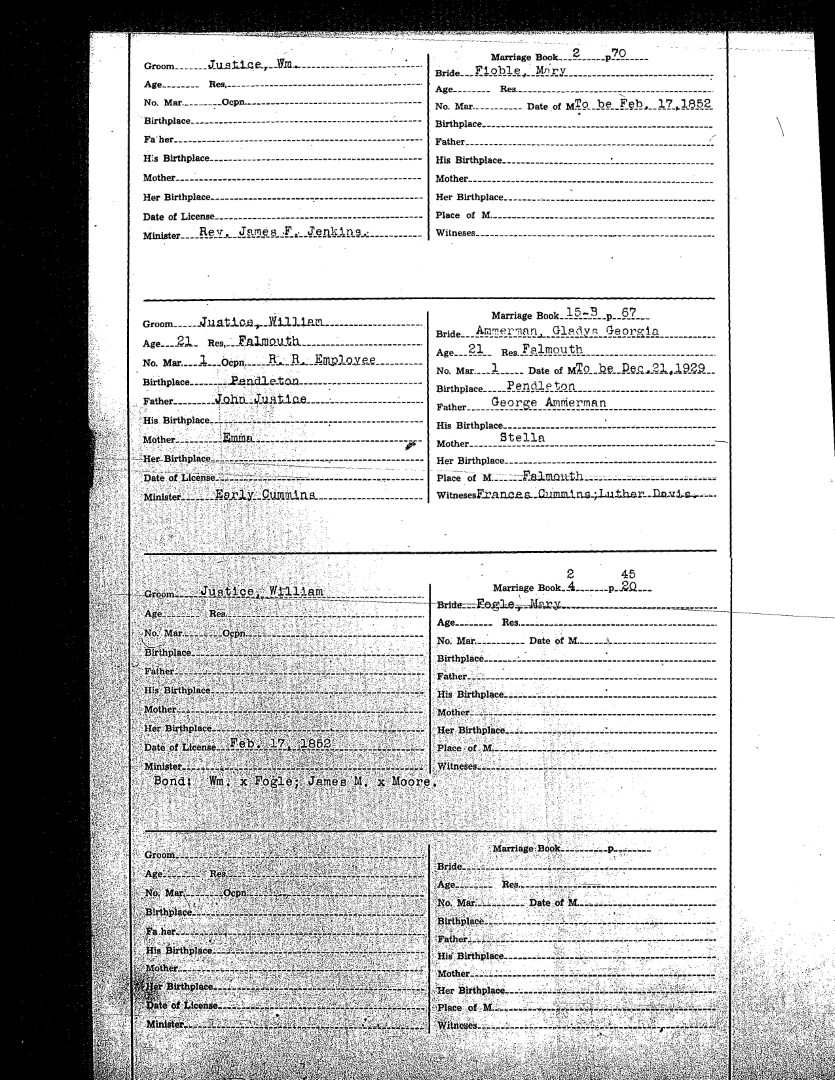 Groom Justice, Wm.
Age Res,
No. Mar. Ocpn.
Birthplace
Fa her
His Birthplace
Mother
Her Birthplace
Date of License
Minister Rev. James F. Jenkins.
Marriage Book 2 p 70
Bride Fioble, Mary
Age Res.
No. Mar. Date of M To be Feb. 17,1852
Birthplace
Father
His Birthplace
Mother
Her Birthplace
Place of M.
Witnesses
Groom Justice, William
Age 21 Res, Falmouth
No. Mar. 1 Ocpn. R. R. Employee
Birthplace Pendleton
Father John Justice
His Birthplace
Mother Emma
Her Birthplace
Date of License
Minister Early Cummins
Marriage Book 15-B p. 67
Bride Ammerman, Gladys Georgia
Age 21 Res Falmouth
No. Mar 1 Date of M To be Dec.21,1929
Birthplace Pendleton
Father George Ammerman
His Birthplace
Mother Stella
Her Birthplace
Place of M. Falmouth
Witnesses Frances Cummins;Luther Davis.
Groom Justice, William
Age Res.
No. Mar. Ocpn.
Birthplace
Father
His Birthplace
Mother
Her Birthplace
Date of License Feb. 17, 1852
Minister
2 45
Marriage Book 4 p. 20
Bride Fogle, Mary
Age Res.
No. Mar. Date of M.
Birthplace
Father
His Birthplace
Mother
Her Birthplace
Place of M.
Witnesses
Bond: Wm. x Fogle; James M. x Moore.
Groom
Age Res.
No. Mar. Ocpn.
Birthplace
Fa her
His Birthplace
Mother
Her Birthplace
Date of License
Minister
Marriage Book p.
Bride
Age Res.
No. Mar. Date of M.
Birthplace
Father
His Birthplace
Mother
Her Birthplace
Place of M.
Witnesses